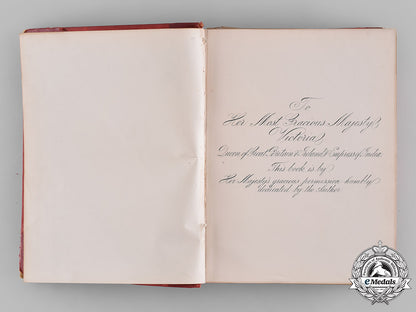 To
Her Most Gracious Majesty,
Victoria
Queen of Great Britain & Ireland & Empress of India.
This book is by
Her Majesty's gracious permission humbly
dedicated by the Author
eMedals
www.emedals.com